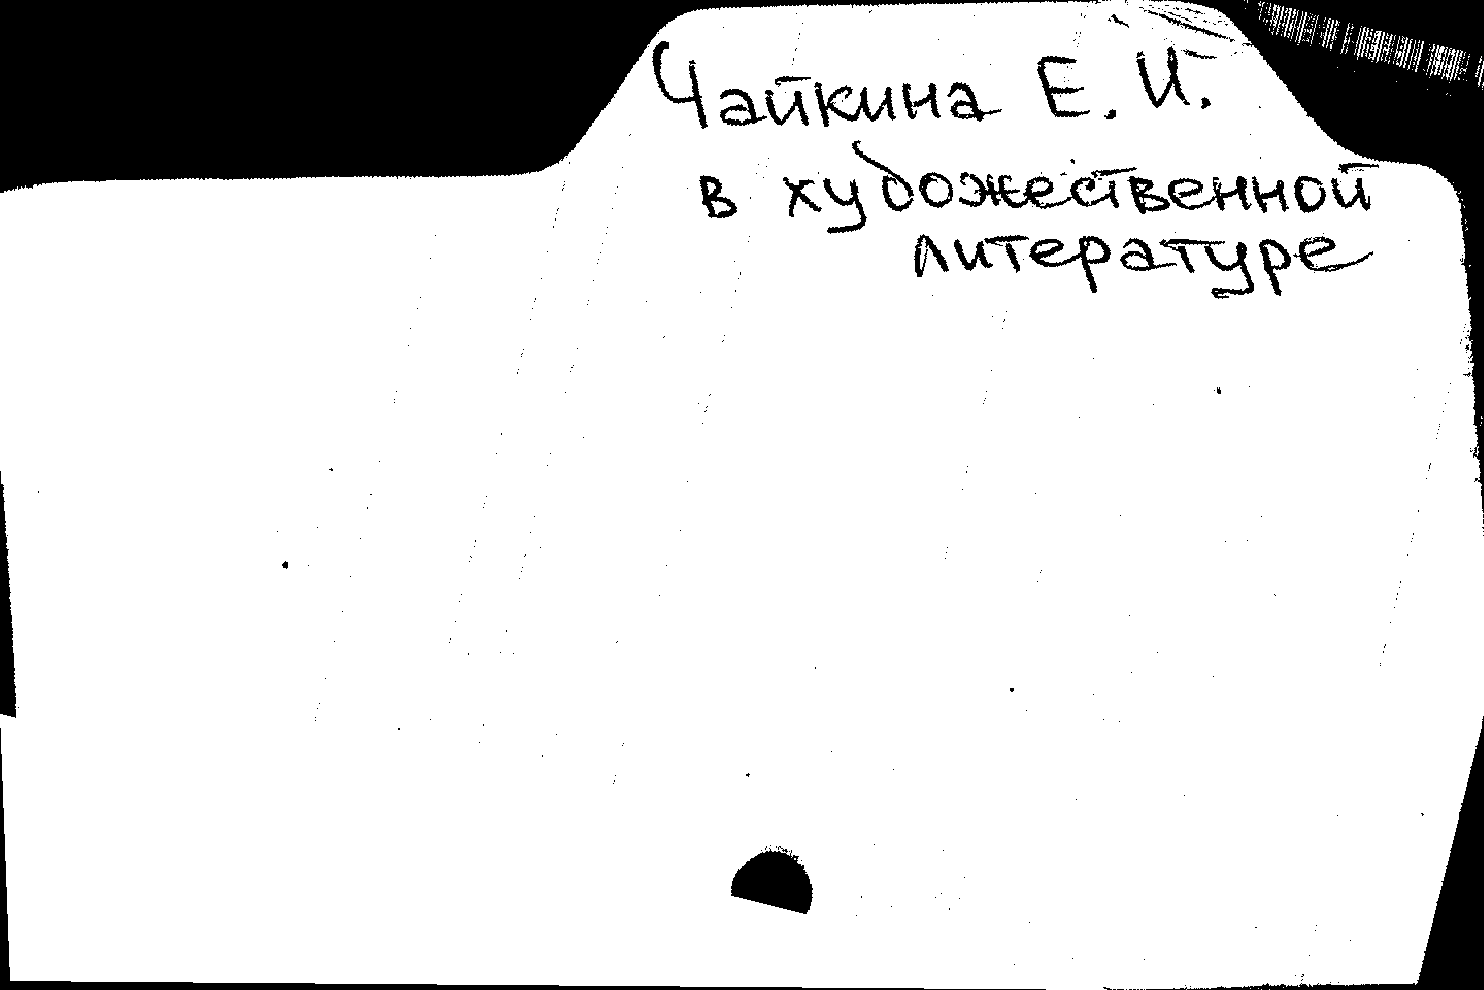 Чайкина Е. И.
в художественной
литературе